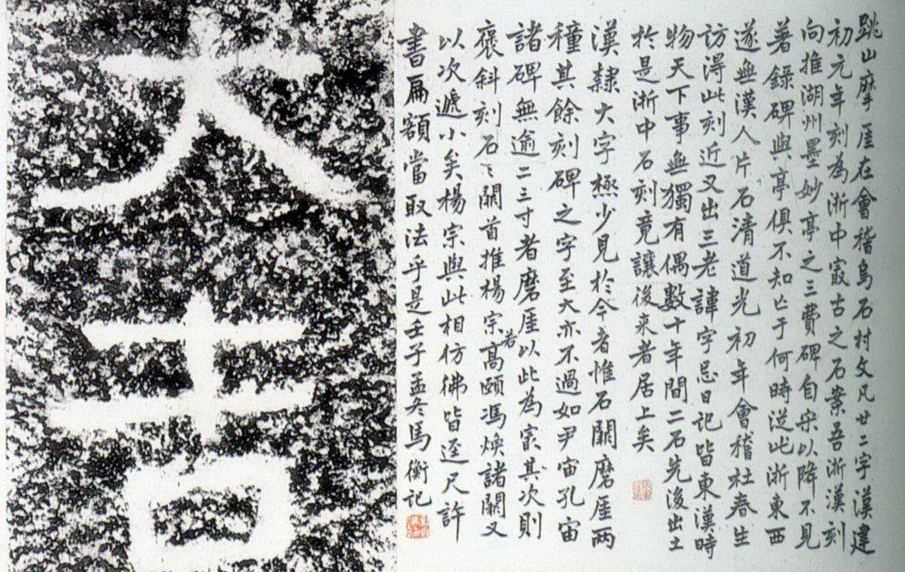 跳山摩厓在會稽烏石村文凡廿二字漢建
初元年刻為浙中冣古之石案吾浙漢刻
向推湖州墨妙亭之三費碑自宋以降不見
著錄碑與亭俱不知亡于何時從此浙東西
遂無漢人片石清道光初年會稽杜春生
訪得此刻近又出三老諱字忌日記皆東漢時
物天下事無獨有偶數十年間二石先後出土
於是浙中石刻竟讓後來者居上矣
漢隸大字極少見於今者惟石闕磨厓兩
種其餘刻碑之字至大亦不過如尹宙孔宙
諸碑無逾二三寸者磨厓以此為宗其次則
褒斜刻石石闕首推楊宗若高頤馮煥諸闕又
以次遞小矣楊宗與此相仿彿皆逕尺許
書扁額當取法乎是壬子孟冬馬衡記
大吉